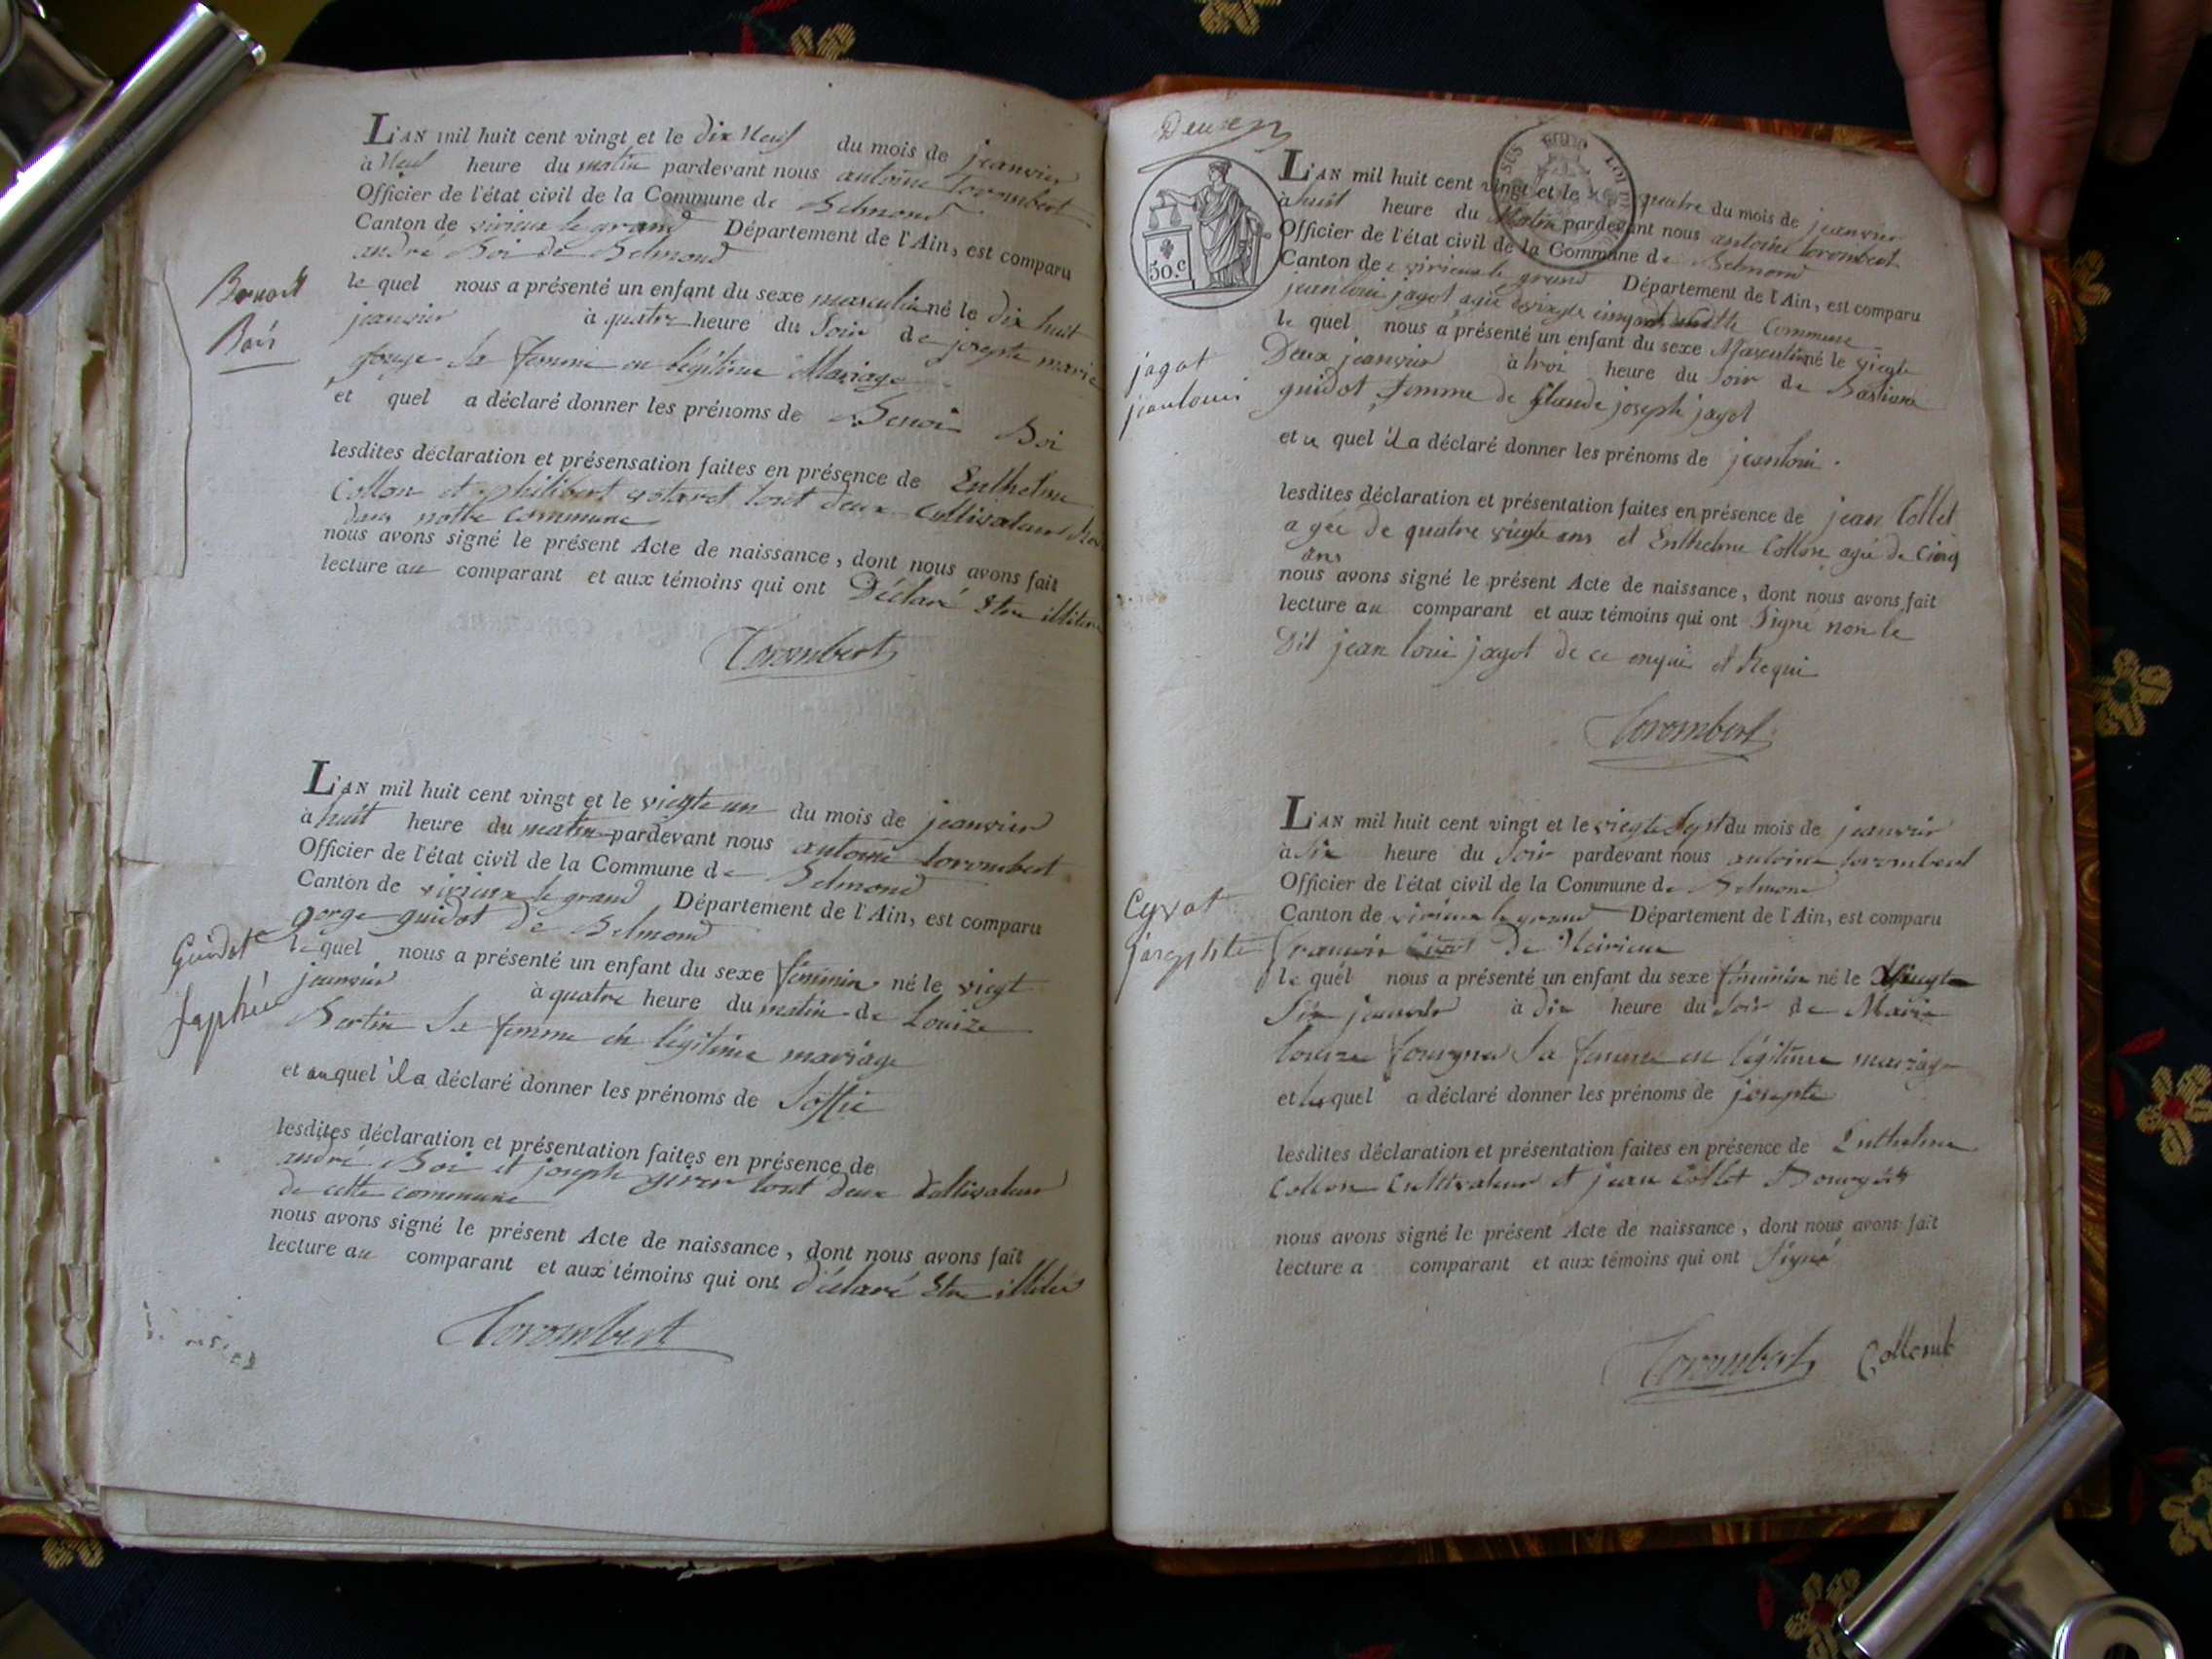 L'AN mil huit cent vingt et le dix Neuf du mois de jeanvier
à Neuf heure du matin pardevant nous antoine torombert
Officier de l'état civil de la Commune de Belmond
Canton de virieux le grand Département de l'Ain, est comparu
andré Boi de Belmond
le quel nous a présenté un enfant du sexe masculin né le dix huit
jeanvier à quatre heure du Soir de josepte marie
sa femme en légitime Mariage
et quel a déclaré donner les prénoms de Benoi Boi
lesdites déclaration et présensation faites en présence de Enthelme
Collon et philibert tout deux Cultivateur
dans notre Commune
nous avons signé le présent Acte de naissance, dont nous avons fait
lecture au comparant et aux témoins qui ont Déclaré Etre
Torombert
Benoit
Bois
L'AN mil huit cent vingt et le viegte un du mois de jeanvier
à huit heure du matin pardevant nous antoine torombert
Officier de l'état civil de la Commune de Belmond
Canton de virieux le grand Département de l'Ain, est comparu
gorge guidot de Belmond
le quel nous a présenté un enfant du sexe féminin né le viegt
jeanvier à quatre heure du matin de Louize
Bertin Sa femme en légitime mariage
et auquel il a déclaré donner les prénoms de Soffie
lesdites déclaration et présentation faites en présence de
andré Boi et joseph tout deux Cultivateur
de cette commune
nous avons signé le présent Acte de naissance, dont nous avons fait
lecture au comparant et aux témoins qui ont déclaré Etre
Torombert
Guidot
Deux
50.C
L'AN mil huit cent vingt et le quatre du mois de jeanvier
à huit heure du Matin pardevant nous antoine torombert
Officier de l'état civil de la Commune de Belmond
Canton de virieux le grand Département de l'Ain, est comparu
jeanloui jagot agée Commune
le quel nous a présenté un enfant du sexe Masculin né le viegte
Deux jeanvier à troi heure du Soir de Bastiane
guidot femme de Claude joseph jagot
et u quel il a déclaré donner les prénoms de jeanloui
lesdites déclaration et présentation faites en présence de jean Collet
agée de quatre viegte ans et Enthelme Collon agée de Cinq
ans
nous avons signé le présent Acte de naissance, dont nous avons fait
lecture au comparant et aux témoins qui ont Signé non le
Dit jean loui jagot de ce enqui et Requi
Torombert
jagot
jeanlouis
L'AN mil huit cent vingt et le viegte Sept du mois de jeanvier
à Six heure du Soir pardevant nous antoine torombert
Officier de l'état civil de la Commune de Belmond
Canton de virieux le grand Département de l'Ain, est comparu
francoi de
le quel nous a présenté un enfant du sexe féminin né le viegte
Six jeanvier à dix heure du Soir de Marie
louize Sa femme en légitime mariage
et quel a déclaré donner les prénoms de josepte
lesdites déclaration et présentation faites en présence de Enthelme
Collon Cultivateur et jean Collet
nous avons signé le présent Acte de naissance, dont nous avons fait
lecture a comparant et aux témoins qui ont Signé
Torombert
Cyvot
josephte